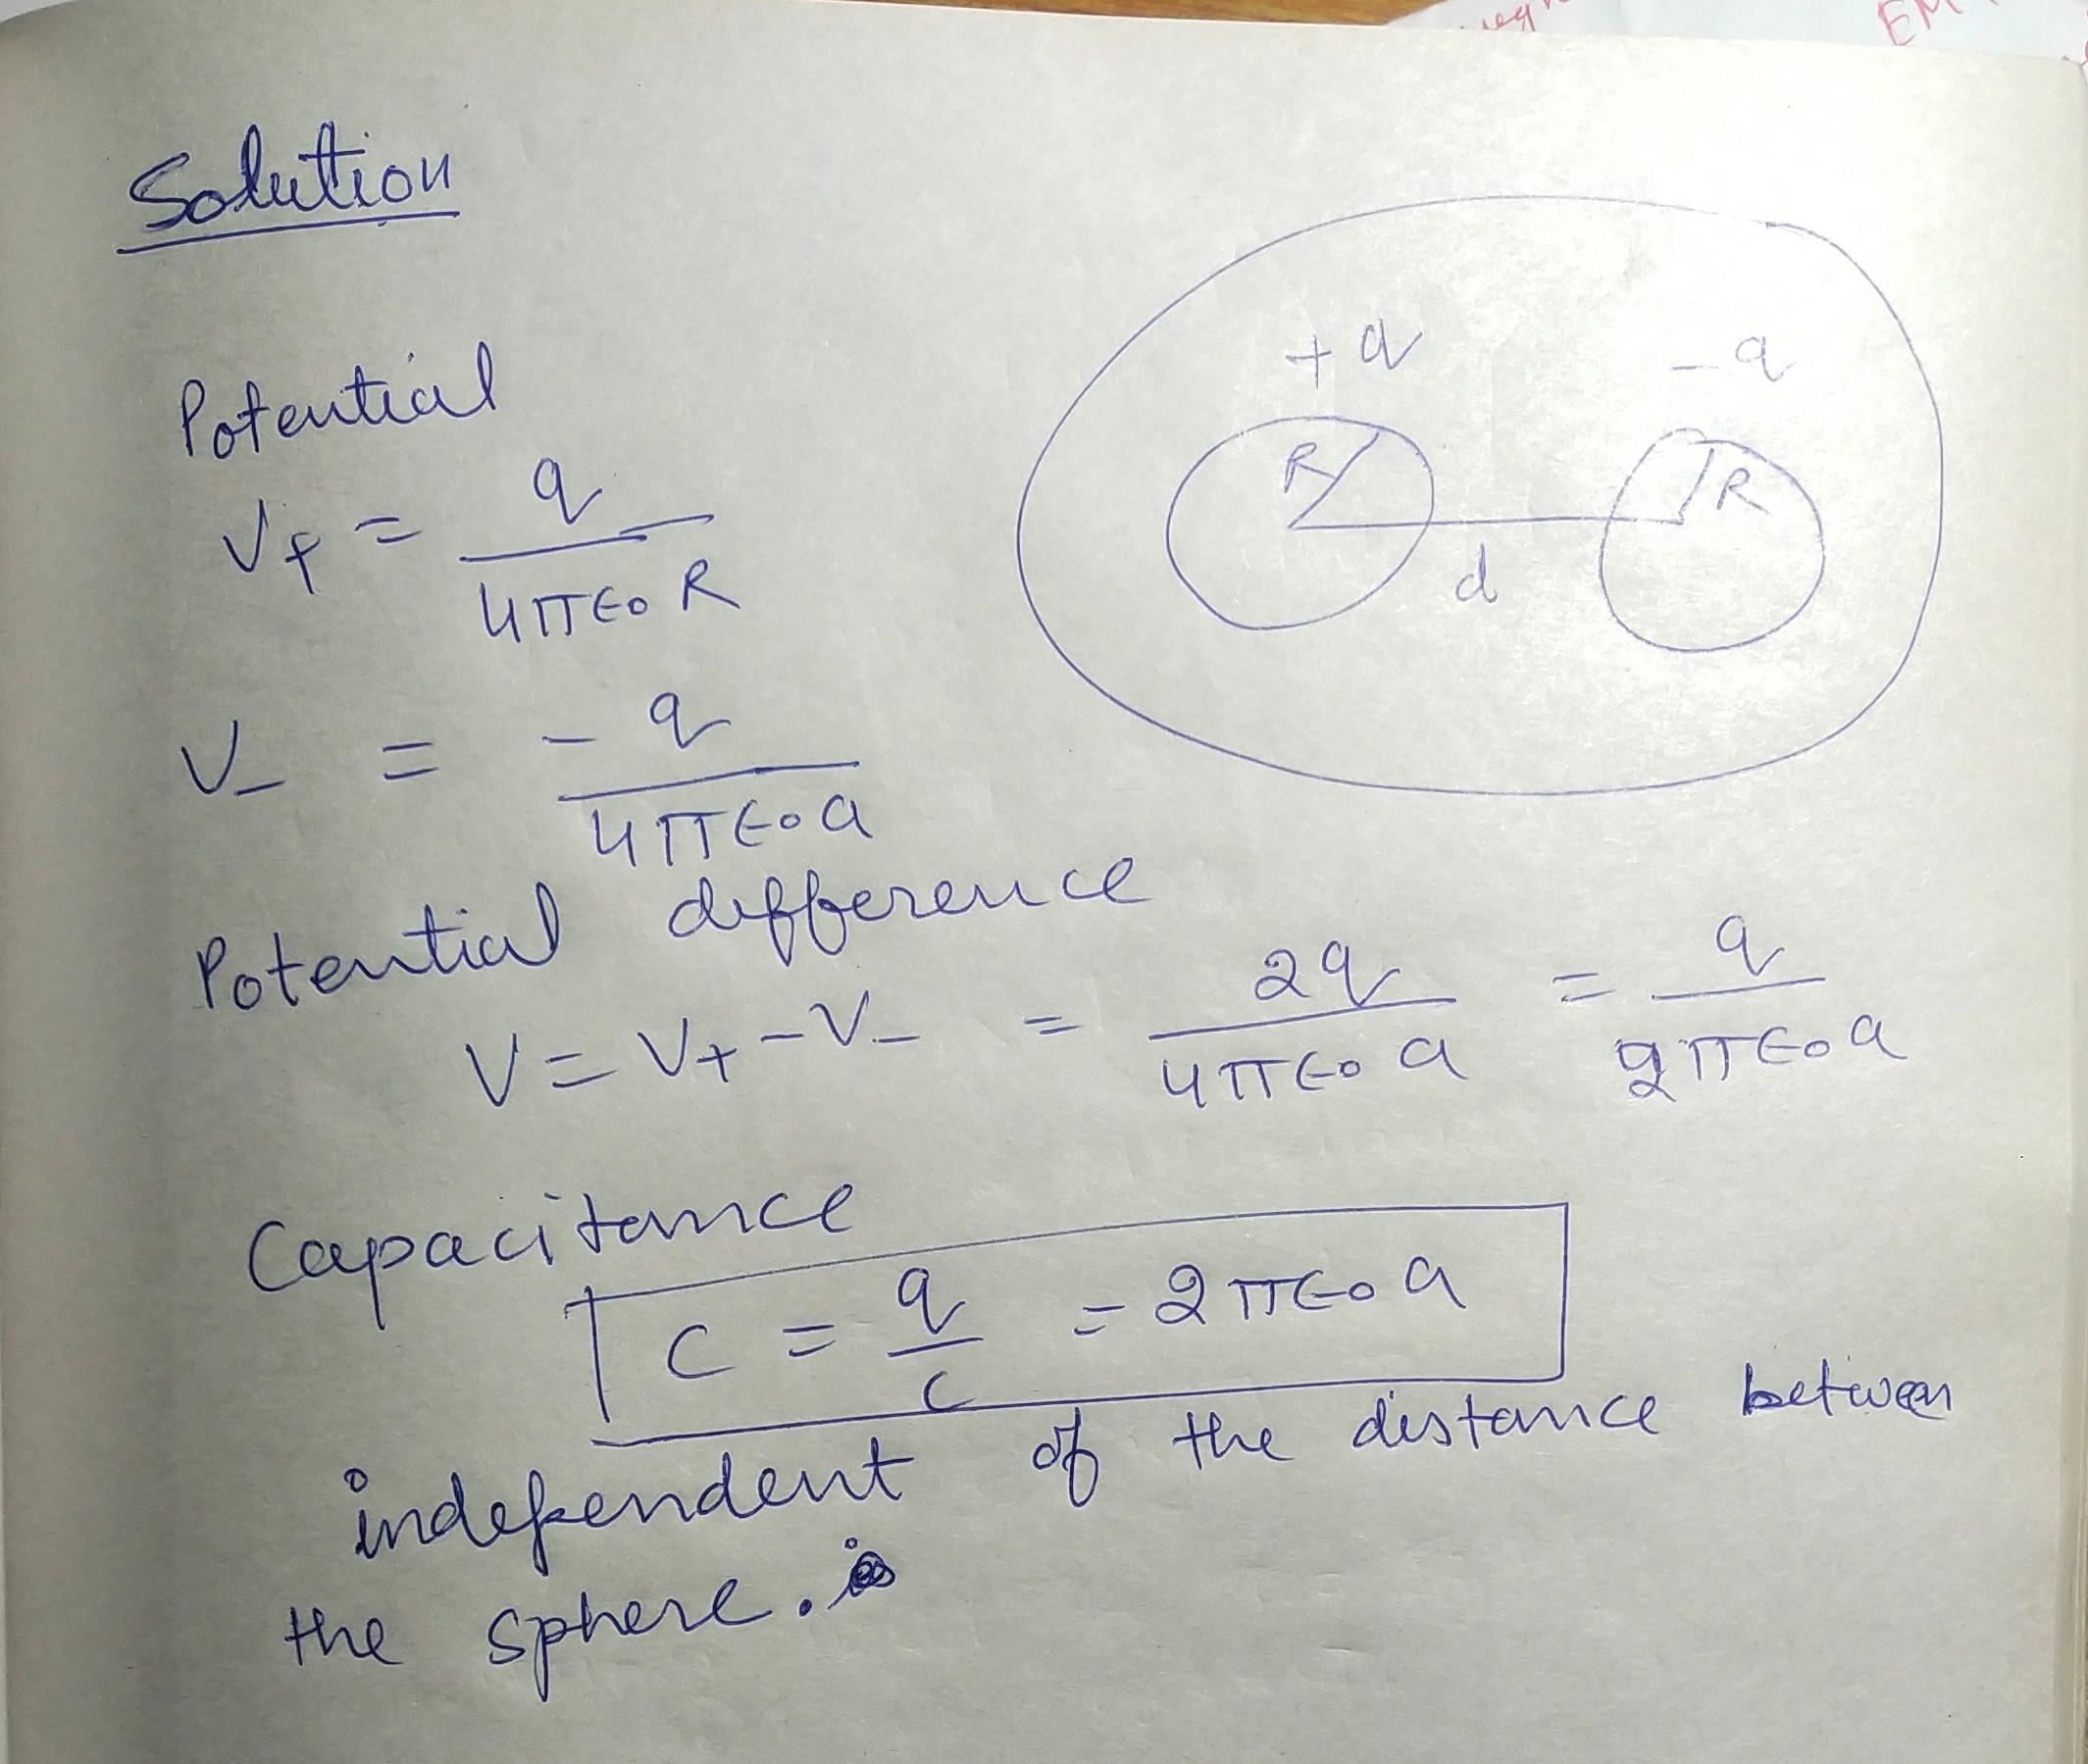 EM
Solution
+q
-q
R
R
d
Potential
V+ = q / 4π∈0 R
V- = -q / 4π∈0 a
Potential difference
V = V+ - V- = 2q / 4π∈0 a = q / 2π∈0 a
Capacitance
C = q / C = 2π∈0 a
independent of the distance between
the sphere.